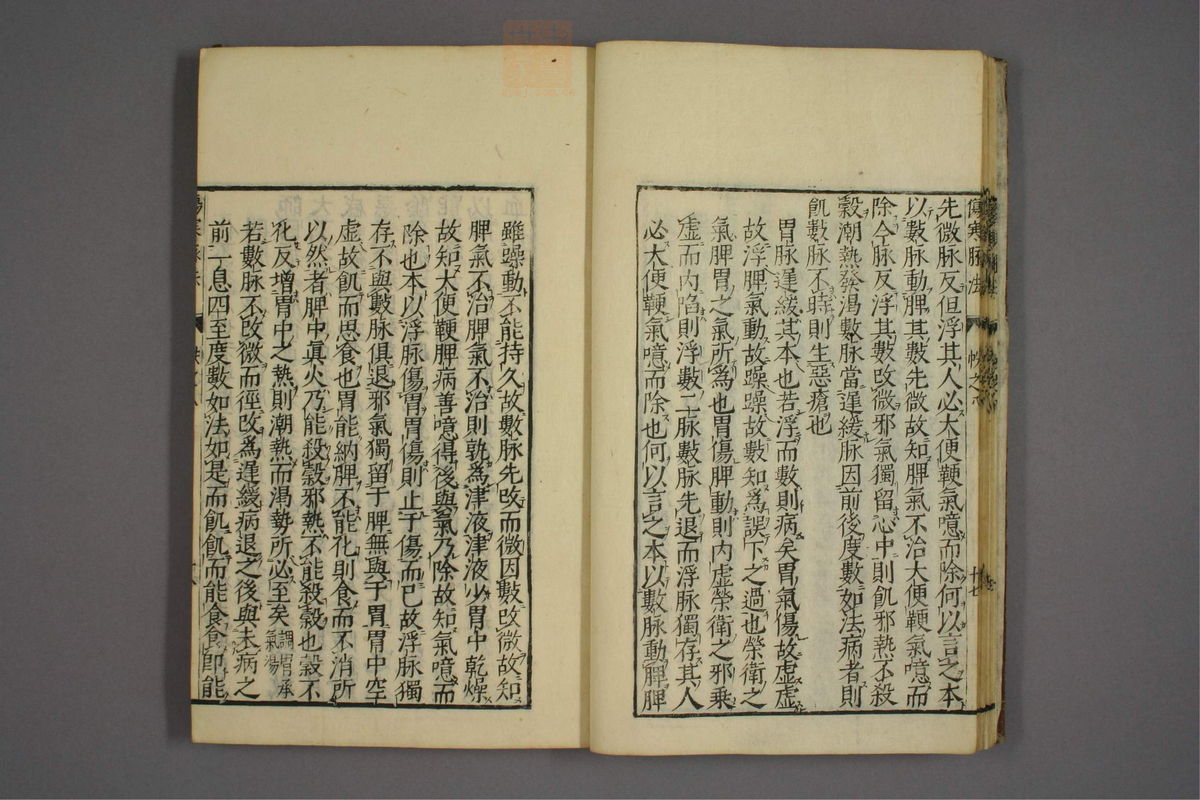 傷寒脉法 帙之八 十七
先微脉反但浮其人必大便鞕氣噫而除何以言之本
以數脉動脾其數先微故知脾氣不治大便鞕氣噫而
除今脉反浮其數改微邪氣獨留心中則飢邪熱不殺
穀潮熱發渴數脉當遲緩脉因前後度數如法病者則
飢數脉不時則生惡瘡也
胃脉遲緩其本也若浮而數則病矣胃氣傷故虛虛
故浮脾氣動故躁躁故數知為誤下之過也榮衛之
氣脾胃之氣所為也胃傷脾動則內虛榮衛之邪乗
虛而內陷則浮數二脉數脉先退而浮脉獨存其人
必大便鞕氣噫而除也何以言之本以數脉動脾脾
雖躁動不能持久故數脉先改而微因數改微故知
脾氣不治脾氣不治則孰為津液津液少胃中乾燥
故知大便鞕脾病善噫得後與氣乃除故知氣噫而
除也本以浮脉傷胃胃傷則止于傷而已故浮脉獨
存不與數脉俱退邪氣獨留于脾無與于胃胃中空
虛故飢而思食也胃能納脾不能化則食而不消所
以然者脾中真火乃能殺穀邪熱不能殺穀也穀不
化反增胃中之熱則潮熱而渴勢所必至矣調胃承氣湯
若數脉不改微而徑改為遲緩病退之後與未病之
前一息四至度數如法如是而飢飢而能食食即能